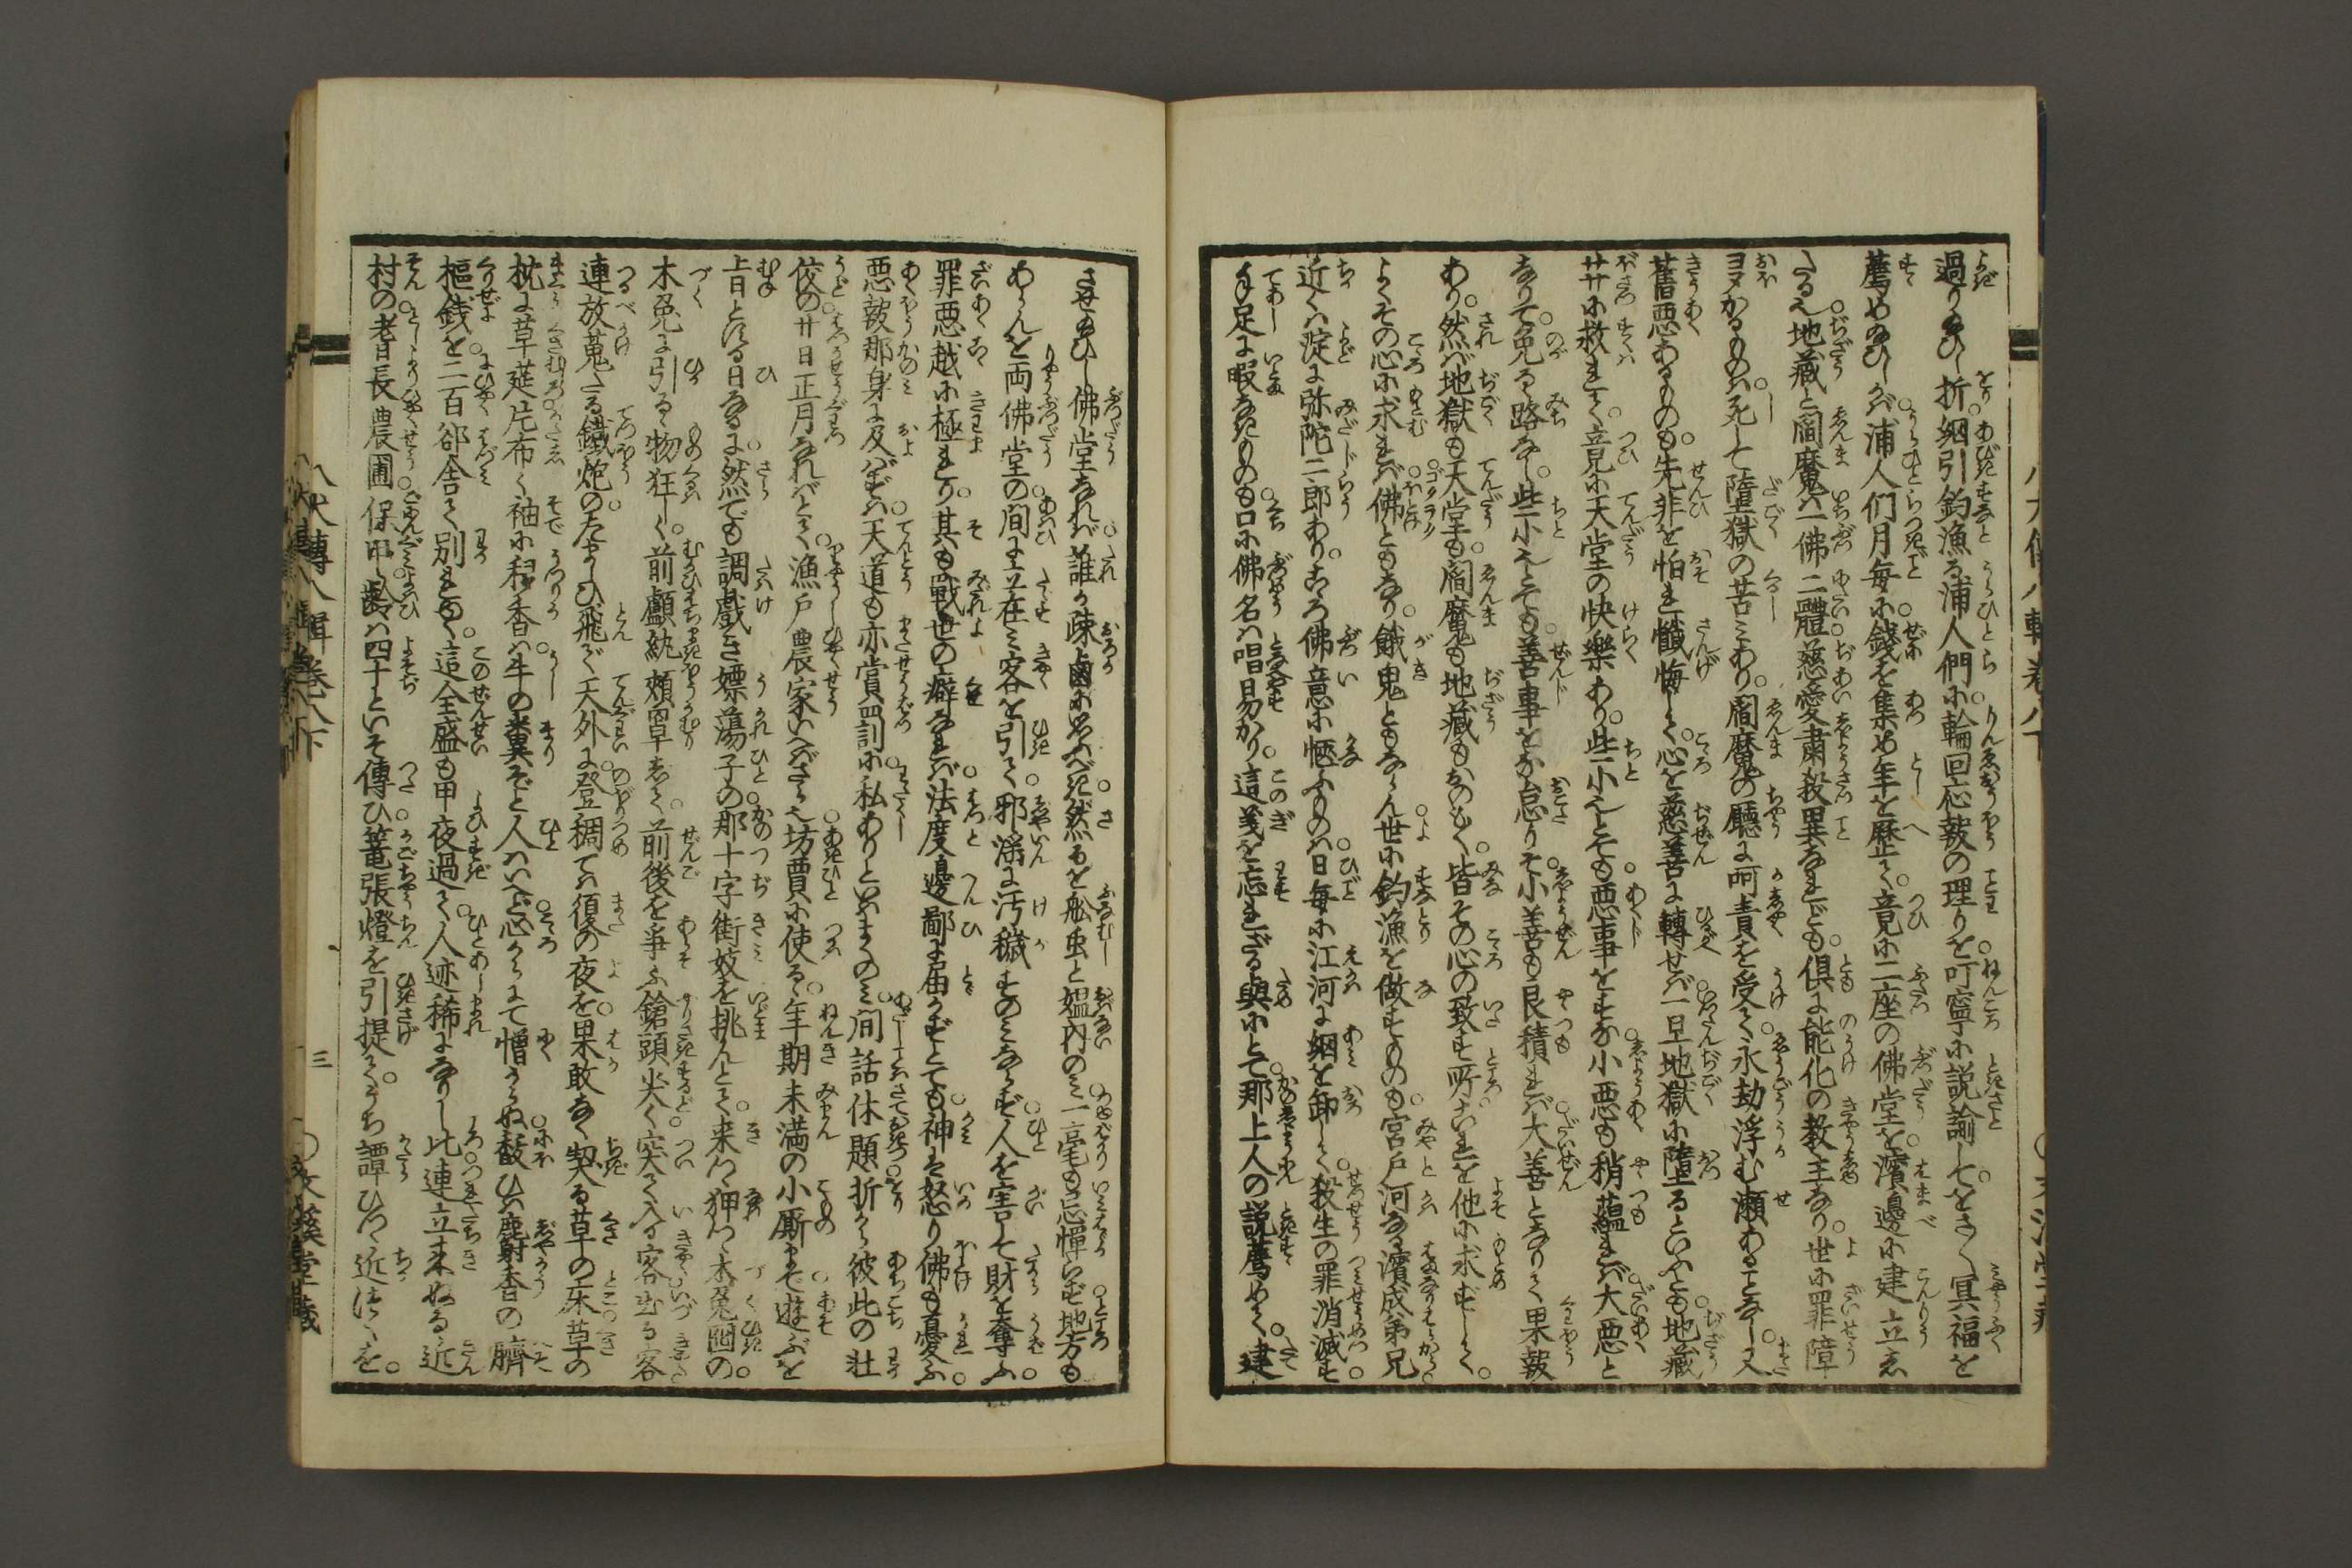 過り給ひし折。網引釣漁る浦人們に。輪回応報の理りを。叮寧に説諭して。をさ〳〵冥福を
薦め給ひしかば。浦人们月毎に。錢を集め年を歴て。竟に二座の佛堂を。濱邊に建立ゑ
たる也。地藏と閻魔は一佛二體。慈愛肅殺異なれども。倶に能化の教主なり。世に罪障
ヨヌかるものは。死して墮獄の苦しみあり。閻魔の廳に呵責を受て。永劫浮む瀬あることなし。又
舊惡あるものも。先非を怕れ懺悔して。心を慈善に轉せば。一旦地獄に墮るといふとも。地藏
井に救れて。竟に天堂の快樂あり。些小也とても惡事をすな。小惡も稍蘊れば。大惡と
なりて。免る路なし。些小也とても。善事をな怠りそ。小善も良積れば。大善となりて果報
あり。然ば地獄も天堂も。閻魔も地藏もなのもく。皆その心の致す所。これを他に求ずして。
よくその心に求れば。佛ともなり。餓鬼ともならん。世に釣漁を做すものも。宮戸河なる濱成弟兄。
近くは淀に弥陀二郎あり。こゝろ佛意に愜ふものは。日毎に江河に網を卸して。殺生の罪消滅す。
手足に暇なきものも。口に佛名は唱易かり。這義を忘れざる與にとて。那上人の説薦めて。建
させ給ひし佛堂なれば。誰か疎鹵に思ふべき。然るを舩虫と媼内のミ。一毫も忌憚らず。地方も
あらんを両佛堂の。間に立在ミ客を引て。邪淫に汚穢すのミならず。人を害して財を奪ふ。
罪惡越に極れり。其も戰世の癖なれば。法度邊鄙に届かずとても。神は怒り佛も憂ふ。
惡報那身に及ばずは。天道も亦賞罰に。私ありといはまくのミ。間話休題。折から彼此の壮
佼の。廿日正月なればとて。漁戸農家いへばさら也。坊賈に使るゝ。年期未満の小厮まで。遊ぶを
旨とする日なるに。然でも調戯き嫖蕩子の。那十字街妓を挑んとて。来つ狎つゝ木兔囮の。
木兔に引るゝ物狂し。前顱紈頬冒なして。前後を爭ふ鎗頭尖く。突て入る客出る客
連放蒐たる鐵炮の。たましひ飛で天外に。登稠ては復の夜を。果敢なく契る草の床。草の
枕に草莚。片布く袖に移香は。牛の糞ぞと人はいへど。心からにて憎からぬ。馥ひは麝香の臍
樞銭を。二百卻舎て別れゆく。這全盛も甲夜過て。人迹稀になりし比。連立来ぬる近
村の。老長農圃。保甲。齡は四十といそ傳ひ。篭張燈を引提て。うち譚ひつゝ近づくを。
八犬傳八輯巻八下
三
文溪堂藏